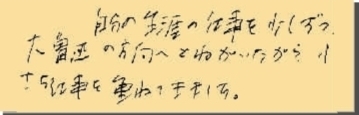 自分の生涯の仕事を少しずつ、
の方向へとねがいながら、小
さな仕事を重ねてきました。